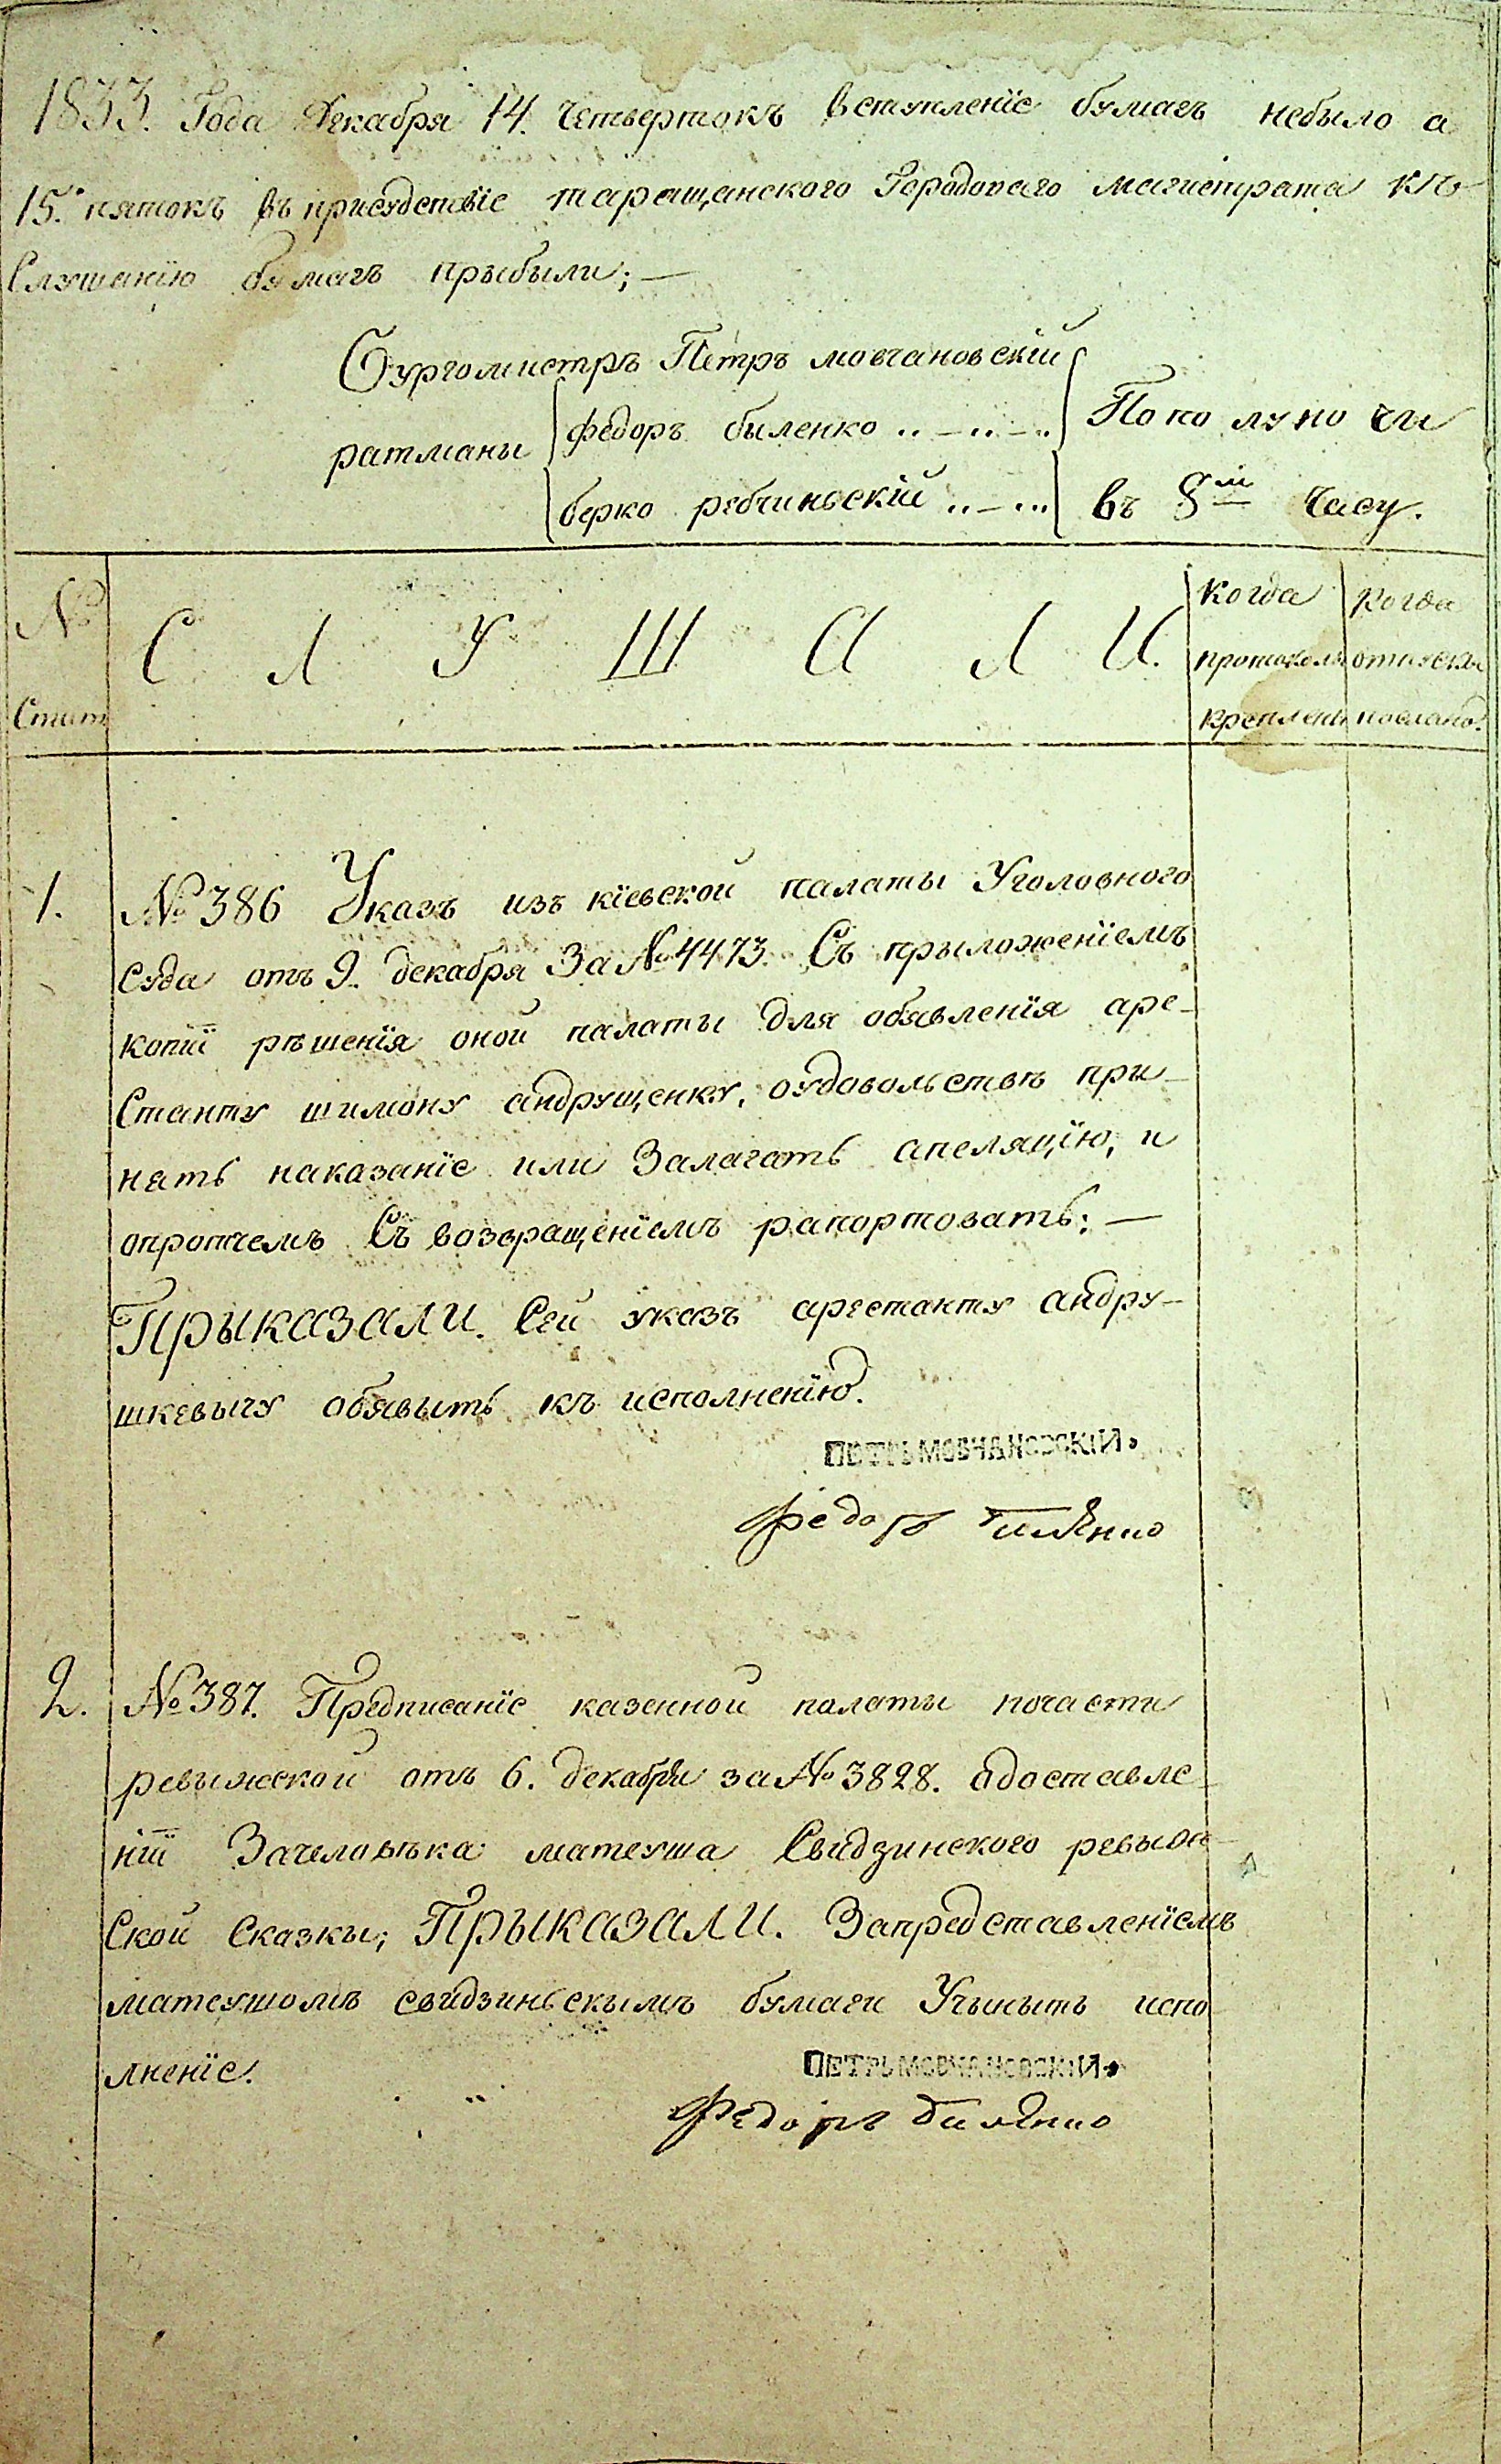 1833. Года Декабря 14. Четвертокъ вступленїе бумагъ небыло а
15. пятокъ въ присудствїе таращанского Городоваго магистрата къ
Слушанїю бумагъ прыбыли; —
Бургомистръ Петръ мовчановскїй
ратманы
федоръ былeнко .. — .. — ..
берко ребчиньскїй .. — ...
По полуночи
въ 8м часу.
№
Стат
С Л У Ш А Л И.
когда
протоколъ
крепленъ
когда
отпуски
посланы.
1.
№ 386 Указъ изъ кїевской палаты Уголовного
суда отъ 9. декабря За № 4473. Съ прыложенїемъ
копїи рѣшенїя оной палаты для обявленїя аре-
станту шимону андрущенку, оудовольствѣ при-
нять наказанїе или Залагать апеляцїю, и
опротчемъ Съ возвращенїемъ рапортовать; —
Прыказали. Сей указъ арестанту андру-
шкевычу обявыть къ исполненїю.
ПЕТРЬ МОВЧАНОВСКІЙ
Федоръ Билѣнко
2.
№ 387. Предписанїе казенной палаты почасти
ревыжской отъ 6. декабря за № 3828. одоставле-
нїи Зачеловѣка матеуша Свидзинского ревыж-
ской Сказкы; Прыказали. Запредставленїемъ
матеушомъ свидзиньскымъ бумаги Учыныть испо
лненїе.
ПЕТРЬ МОВЧАНОВСКІЙ
Федоръ Билѣнко